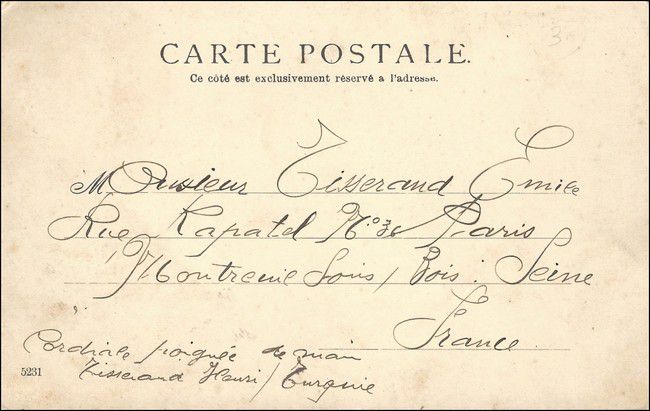 CARTE POSTALE.
Ce côté est exclusivement réservé a l'adresse.
Monsieur Tisserand Emile
Rue Kapatel N.º 36 Paris
Montreuie Sous / Bois : Seine
France
Cordiale poignée de main
Tisserand Henri / Turquie
5231